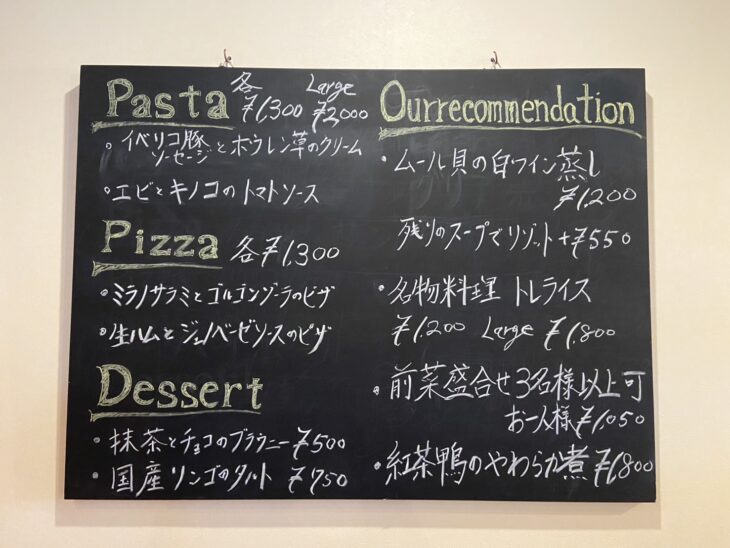 Pasta 各 ¥1,300 Large ¥2,000
・イベリコ豚ソーセージとホウレン草のクリーム
・エビとキノコのトマトソース
Pizza 各¥1,300
・ミラノサラミとゴルゴンゾーラのピザ
・生ハムとジェノベーゼソースのピザ
Dessert
・抹茶とチョコのブラウニー ¥500
・国産リンゴのタルト ¥750
Ourrecommendation
・ムール貝の白ワイン蒸し
¥1,200
残りのスープでリゾット+¥550
・名物料理 トルコライス
¥1,200 Large ¥1,800
・前菜盛合せ3名様以上可
お一人様¥1,050
・紅茶鴨のやわらか煮¥1,800